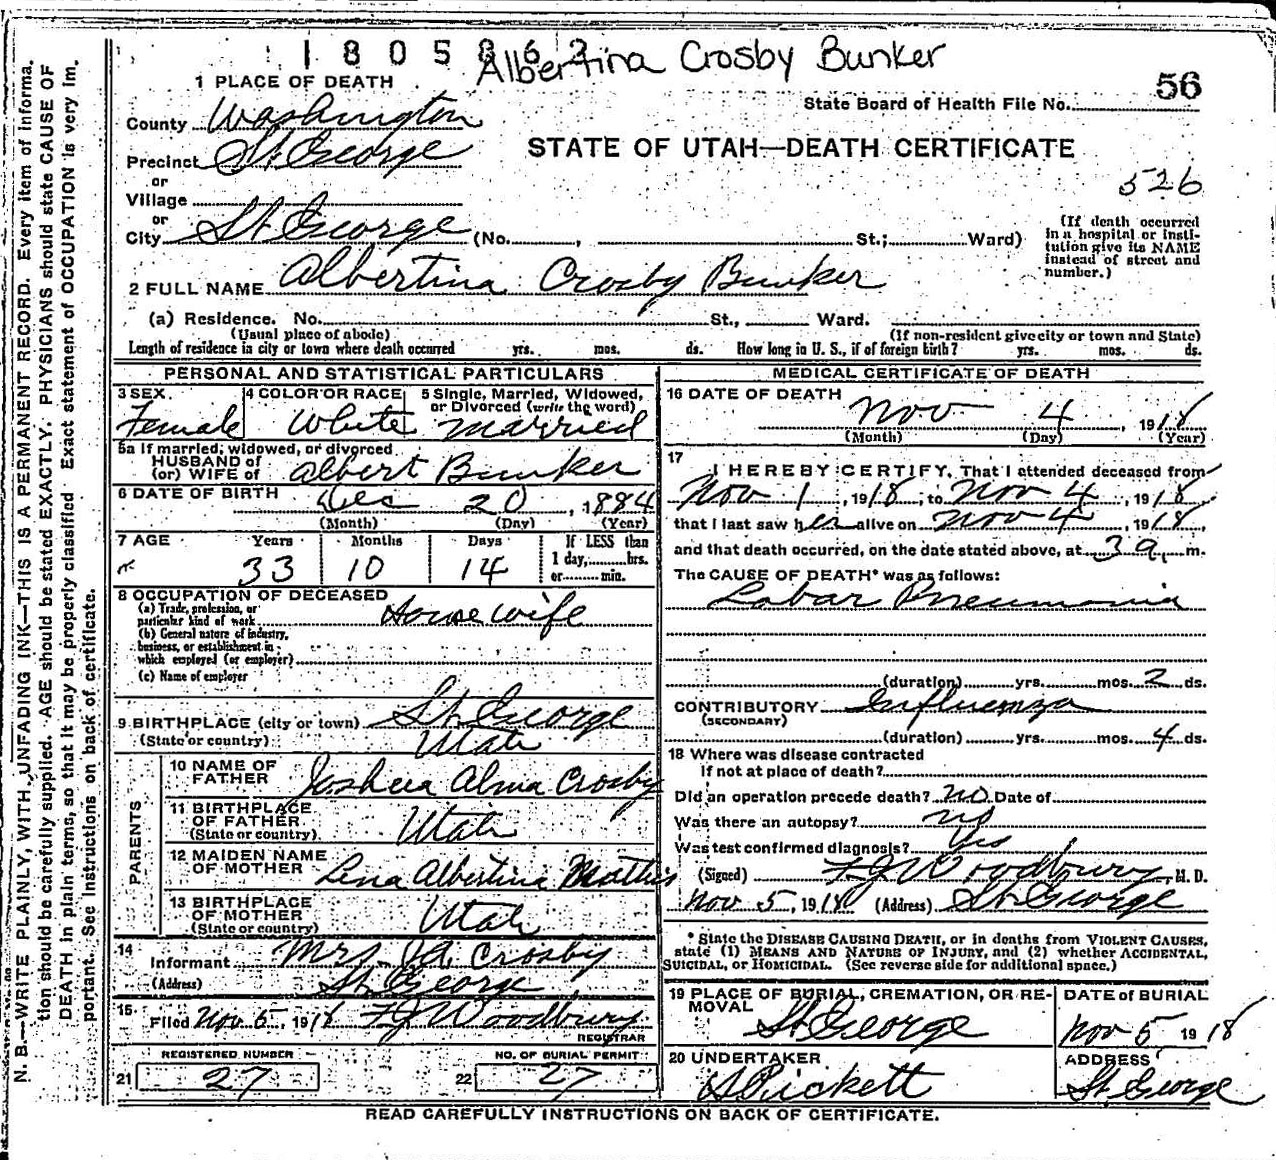 1805862
Albertina Crosby Bunker
56
State Board of Health File No.
STATE OF UTAH—DEATH CERTIFICATE
526
1 PLACE OF DEATH
County Washington
Precinct St. George
or
Village
or
City St George (No. , St.; Ward)
(If death occurred in a hospital or insti-
tution give its NAME
instead of street and
number.)
2 FULL NAME Albertina Crosby Bunker
(a) Residence. No. St., Ward.
(Usual place of abode) (If non-resident give city or town and State)
Length of residence in city or town where death occurred yrs. mos. ds. How long in U. S., if of foreign birth? yrs. mos. ds.
PERSONAL AND STATISTICAL PARTICULARS
3 SEX.
Female
4 COLOR OR RACE
White
5 Single, Married, Widowed,
or Divorced (write the word)
Married
5a If married, widowed, or divorced
HUSBAND of
(or) WIFE of Albert Bunker
6 DATE OF BIRTH Dec 20, 1884
(Month) (Day) (Year)
7 AGE Years Months Days If LESS than
33 10 14 1 day, hrs.
or min.
8 OCCUPATION OF DECEASED
(a) Trade, profession, or
particular kind of work House wife
(b) General nature of industry,
business, or establishment in
which employed (or employer)
(c) Name of employer
9 BIRTHPLACE (city or town) St. George
(State or country) Utah
PARENTS
10 NAME OF
FATHER Joshua Alma Crosby
11 BIRTHPLACE
OF FATHER
(State or country) Utah
12 MAIDEN NAME
OF MOTHER Lena Albertina Mathis
13 BIRTHPLACE
OF MOTHER
(State or country) Utah
14
Informant Mrs. J A Crosby
(Address) St. George
15
Filed Nov 5, 1918 F J Woodbury
REGISTRAR
REGISTERED NUMBER
21 27
NO. OF BURIAL PERMIT
22 27
MEDICAL CERTIFICATE OF DEATH
16 DATE OF DEATH
Nov 4, 1918
(Month) (Day) (Year)
17
I HEREBY CERTIFY, That I attended deceased from
Nov 1, 1918, to Nov 4, 1918,
that I last saw her alive on Nov 4, 1918,
and that death occurred, on the date stated above, at 3 a. m.
The CAUSE OF DEATH* was as follows:
Lobar Pneumonia
(duration) yrs. mos. 2 ds.
CONTRIBUTORY Influenza
(SECONDARY)
(duration) yrs. mos. 4 ds.
18 Where was disease contracted
if not at place of death?
Did an operation precede death? no Date of
Was there an autopsy? no
Was test confirmed diagnosis? Yes
(Signed) F J Woodbury, M. D.
Nov 5, 1918 (Address) St. George
* State the DISEASE CAUSING DEATH, or in deaths from VIOLENT CAUSES,
state (1) MEANS AND NATURE OF INJURY, and (2) whether ACCIDENTAL,
SUICIDAL, or HOMICIDAL. (See reverse side for additional space.)
19 PLACE OF BURIAL, CREMATION, OR RE-
MOVAL St George
DATE of BURIAL
Nov 5 1918
20 UNDERTAKER
S Pickett
ADDRESS
St. George
READ CAREFULLY INSTRUCTIONS ON BACK OF CERTIFICATE.
N. B.—WRITE PLAINLY, WITH UNFADING INK—THIS IS A PERMANENT RECORD. Every item of informa-
tion should be carefully supplied. AGE should be stated EXACTLY. PHYSICIANS should state CAUSE OF
DEATH in plain terms, so that it may be properly classified. Exact statement of OCCUPATION is very im-
portant. See instructions on back of certificate.